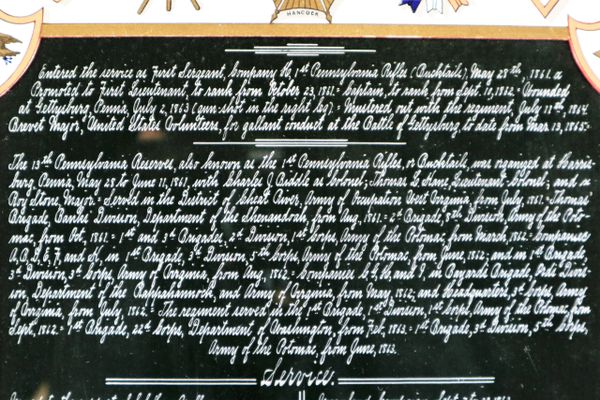 HANCOCK
Entered the service as First Sergeant, Company 1st Pennsylvania Rifles (Bucktails), May 28th, 1861. =
Promoted to First Lieutenant, to rank from October 23, 1861. = Captain, to rank from Sept. 10, 1862. = Wounded
at Gettysburg, Penn'a, July 2, 1863 (gun-shot in the right leg). = Mustered out with the regiment, July 11th, 1864.
Brevet Major, United States Volunteers, for gallant conduct at the Battle of Gettysburg, to date from Mar. 13, 1865.=
The 13th Pennsylvania Reserves, also known as the 1st Pennsylvania Rifles, or Bucktails, was organized at Harris=
burg, Penn'a, May 28 to June 11, 1861, with Charles J. Biddle as Colonel; Thomas L. Kane, Lieutenant Colonel; and
Roy Stone, Major. = Served in the District of Cheat River, Army of Occupation West Virginia, from July, 1861. = Thomas'
Brigade, Banks' Division, Department of the Shenandoah, from Aug, 1861. = 2d Brigade, 8th Division, Army of the Poto=
mac, from Oct, 1861. = 1st and 3d Brigades, 2d Division, 1st Corps, Army of the Potomac, from March, 1862. = Companies
A, B, D, E, F, and K, in 1st Brigade, 3d Division, 5th Corps, Army of the Potomac, from June, 1862; and in 1st Brigade,
3d Division, 3d Corps, Army of Virginia, from Aug, 1862. = Companies C, G, H, and I, in Bayard's Brigade, Divis=
ion, Department of the Rappahannock, and Army of Virginia, from May, 1862; and Headquarters, 3d Corps, Army
of Virginia, from July, 1862. = The regiment served in the 1st Brigade, 1st Division, 1st Corps, Army of the Potomac, from
Sept, 1862. = 1st Brigade, 22d Corps, Department of Washington, from Feb, 1863. = 1st Brigade, 3d Division, 5th Corps,
Army of the Potomac, from June, 1863.
Service.